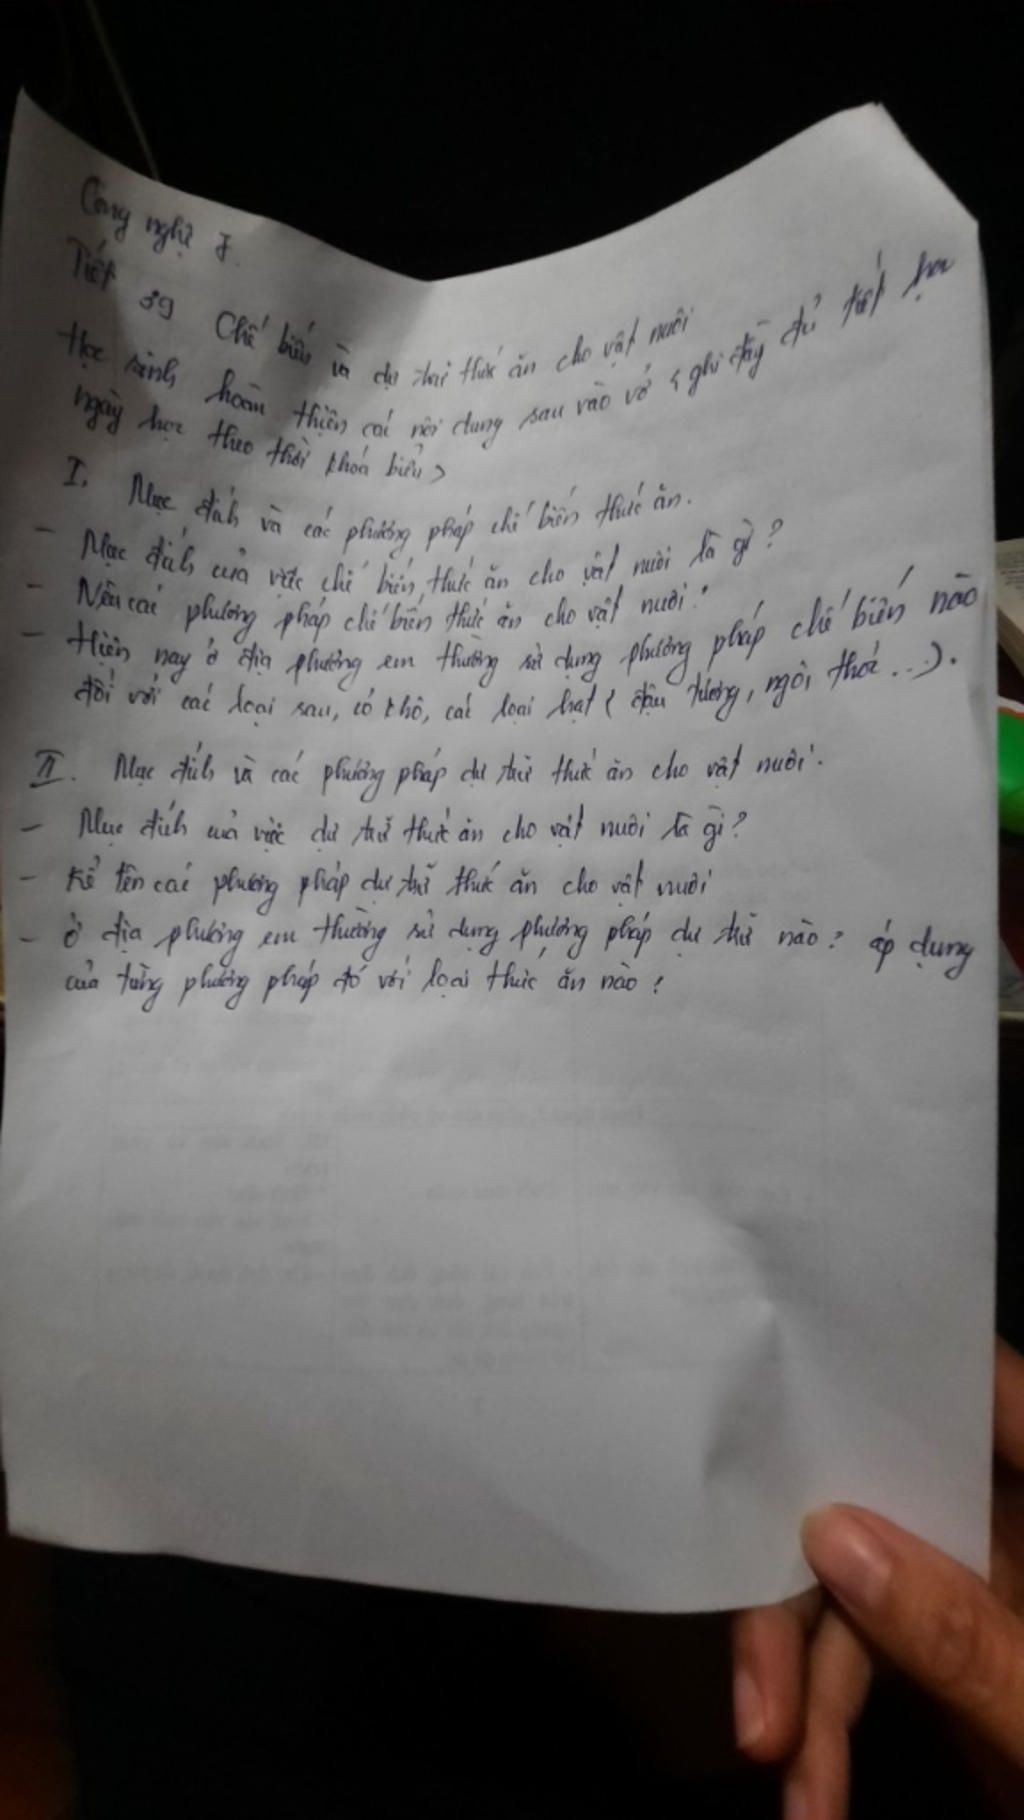 Công nghệ 7.
Tiết 39 Chế biến và dự trữ thức ăn cho vật nuôi
Học sinh hoàn thiện các nội dung sau vào vở (ghi đầy đủ tiết học
ngày học theo thời khoá biểu)
I. Mục đích và các phương pháp chế biến thức ăn.
- Mục đích của việc chế biến thức ăn cho vật nuôi là gì?
- Nêu các phương pháp chế biến thức ăn cho vật nuôi.
- Hiện nay ở địa phương em thường sử dụng phương pháp chế biến nào
đối với các loại sau, cỏ khô, các loại hạt (đậu tương, ngô, thóc...).
II. Mục đích và các phương pháp dự trữ thức ăn cho vật nuôi.
- Mục đích của việc dự trữ thức ăn cho vật nuôi là gì?
- Kể tên các phương pháp dự trữ thức ăn cho vật nuôi
- Ở địa phương em thường sử dụng phương pháp dự trữ nào? áp dụng
của từng phương pháp đó với loại thức ăn nào?